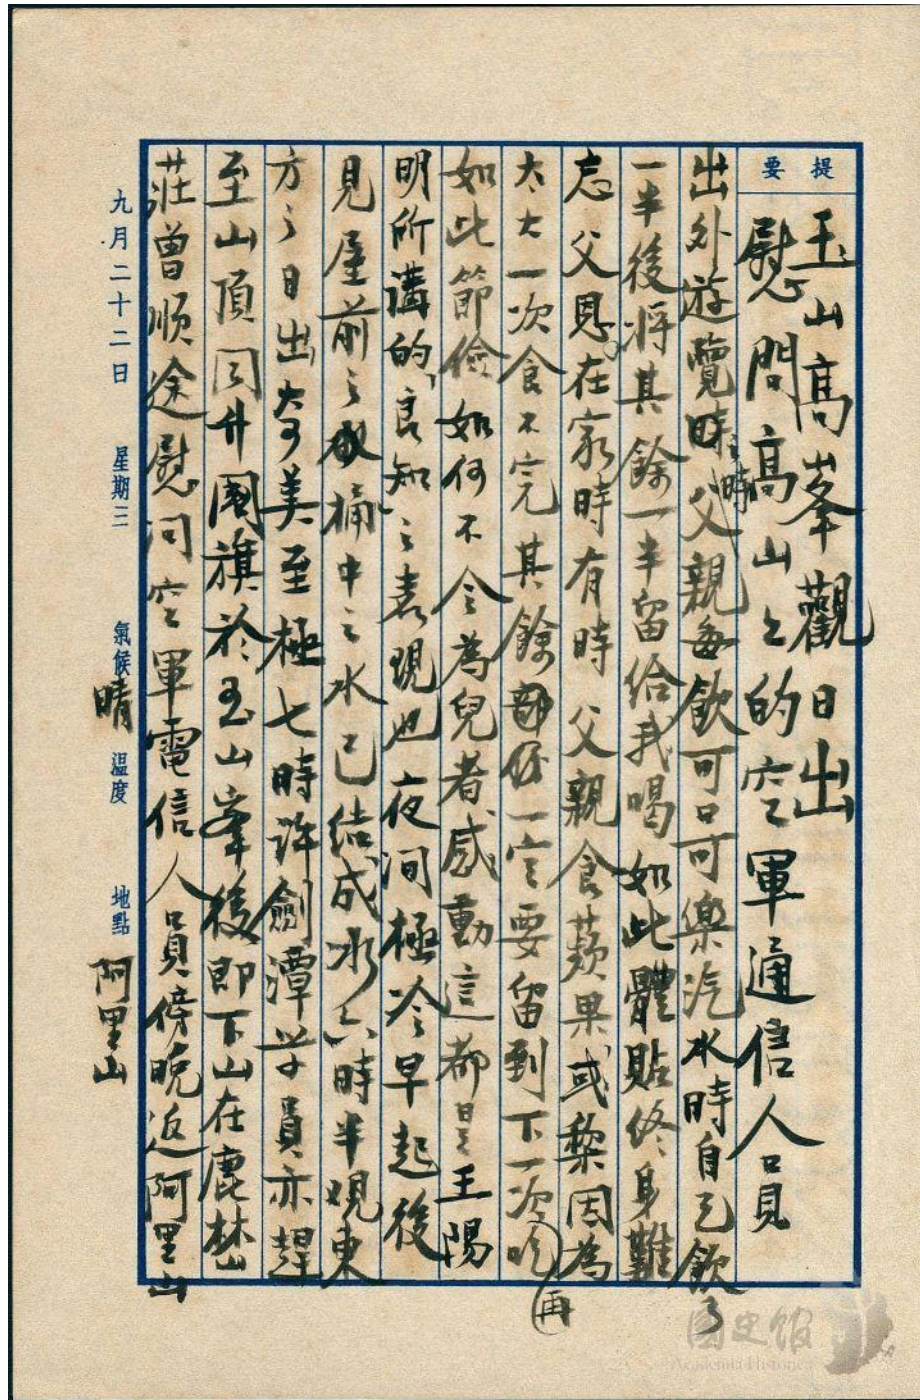 提要
玉山高峯觀日出
慰問高山上的空軍通信人員
出外遊覽時，父親每飲可口可樂汽水時自己飲了
時
一半後將其餘一半留給我喝如此體貼終身難
忘父恩。在家時有時父親食蘋果或梨因為
太大一次食不完其餘部份一定要留到下一次再吃
如此節儉如何不令為兒者感動這都是王陽
明所講的「良知」之表現也夜間極冷早起後
見屋前之水桶中之水已結成冰六時半觀東
方之日出奇美至極七時許劍潭學員亦趕
至山頂同升國旗於玉山峯後即下山在鹿林山
莊曾順途慰問空軍電信人員傍晚返阿里山
九月二十二日 星期三 氣候 晴 溫度 地點 阿里山
國史館
Academia Historica